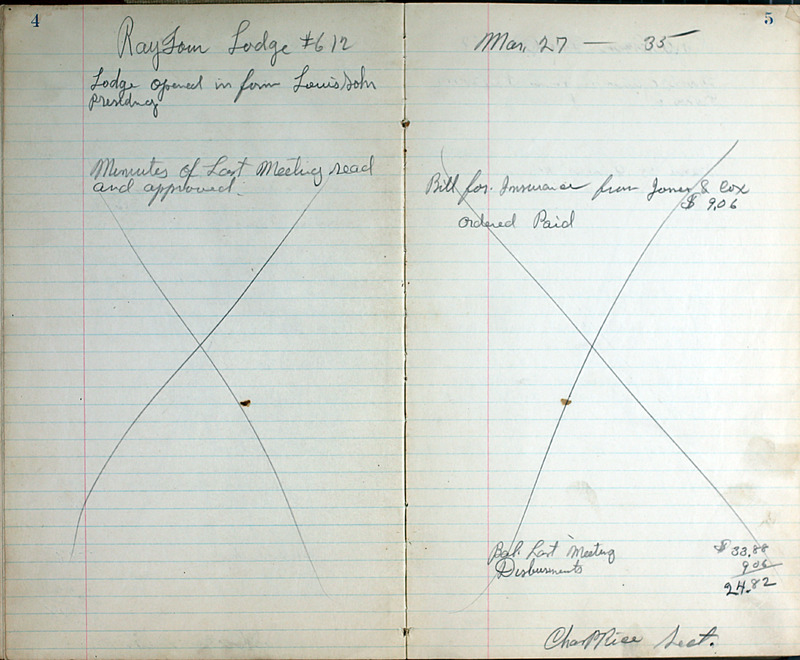 4
RayTown Lodge #612
Lodge opened in form Louis John
presiding
Minutes of Last Meeting read
and approved.
5
Mar. 27 — 35
Bill for Insurance from Jones & Cox
$ 9.06
ordered Paid
Bal. Last Meeting $ 33.88
Disbursments 9.06
24.82
Chas Rice Sect.